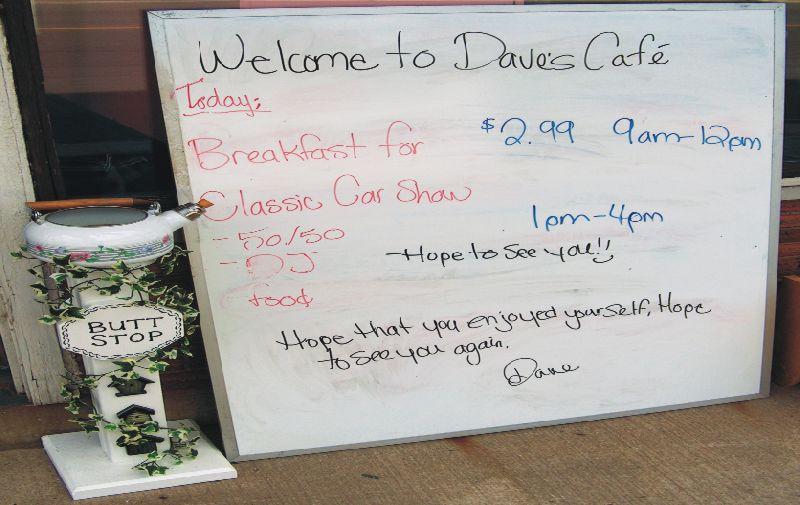 Welcome to Dave's Café
Today:
Breakfast for $2.99 9am-12pm
Classic Car Show
1pm-4pm
- 50/50
- DJ
-Hope to see you!!
food
Hope that you enjoyed yourself, Hope
to see you again.
Dave
BUTT
STOP